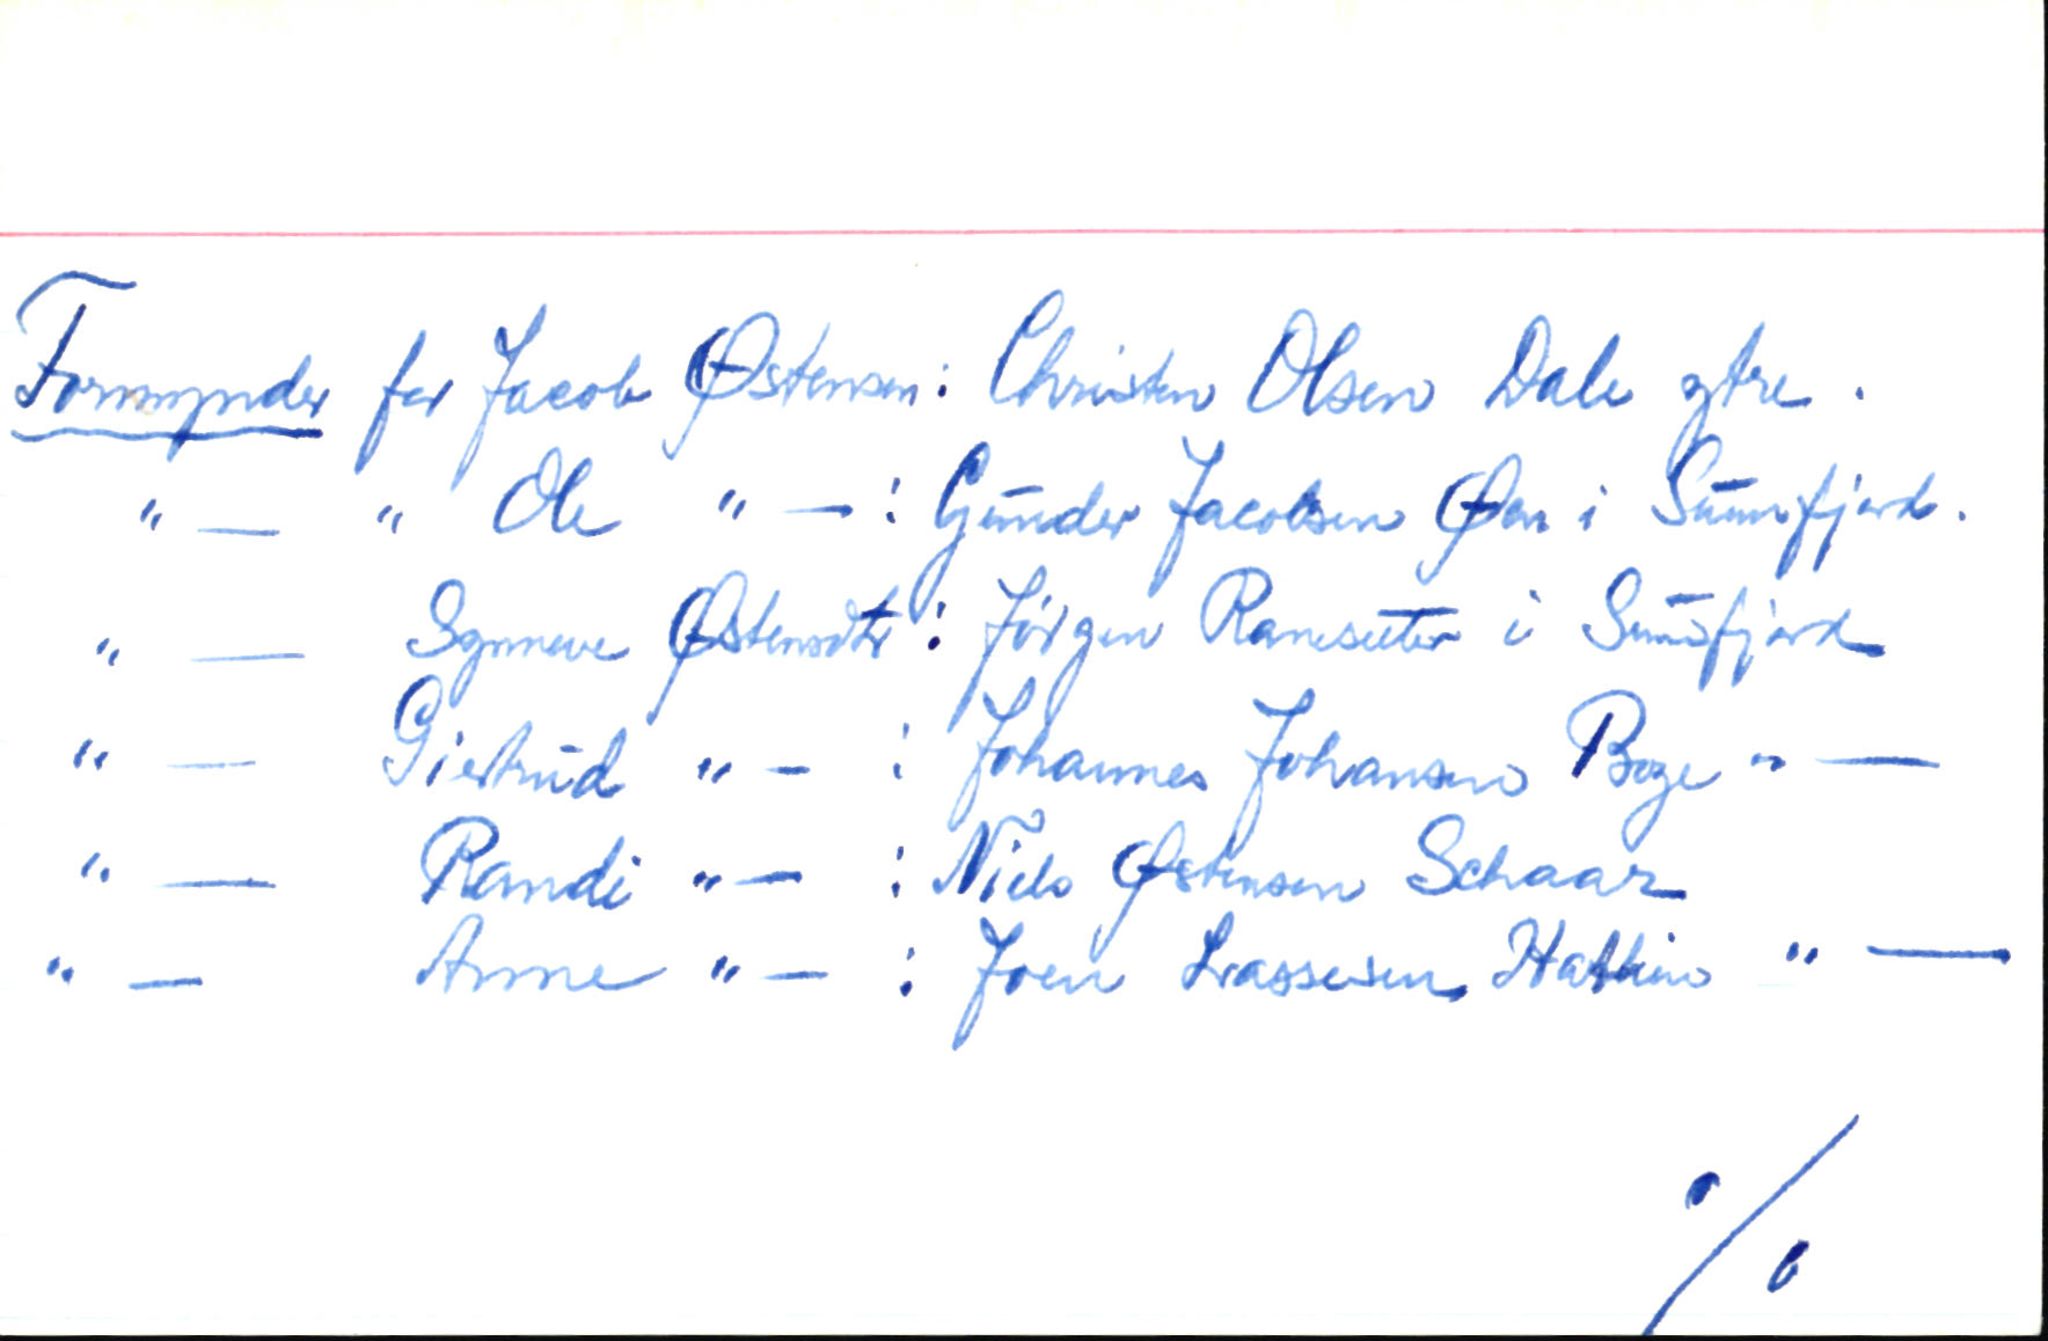 Formynder for Jacob Østensen: Christen Olsen Dale ytre.
" — " Ole " — : Gunder Jacobsen Øen i Sunnfjord.
" — Synneve Østensdtr: Jörgen Ranseter i Sunsfjord
" — Giertrud " — : Johannes Johansen Boge " —
" — Randi " — : Niels Østensen Schaar
" — Anne " — : Joen Lassesen, " —